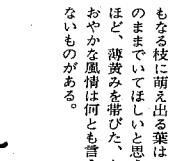 もなる枝に萌え出る葉は
のままでいてほしいと思
ほど、薄黄みを帯びた、
おやかな風情は何とも言
ないものがある。